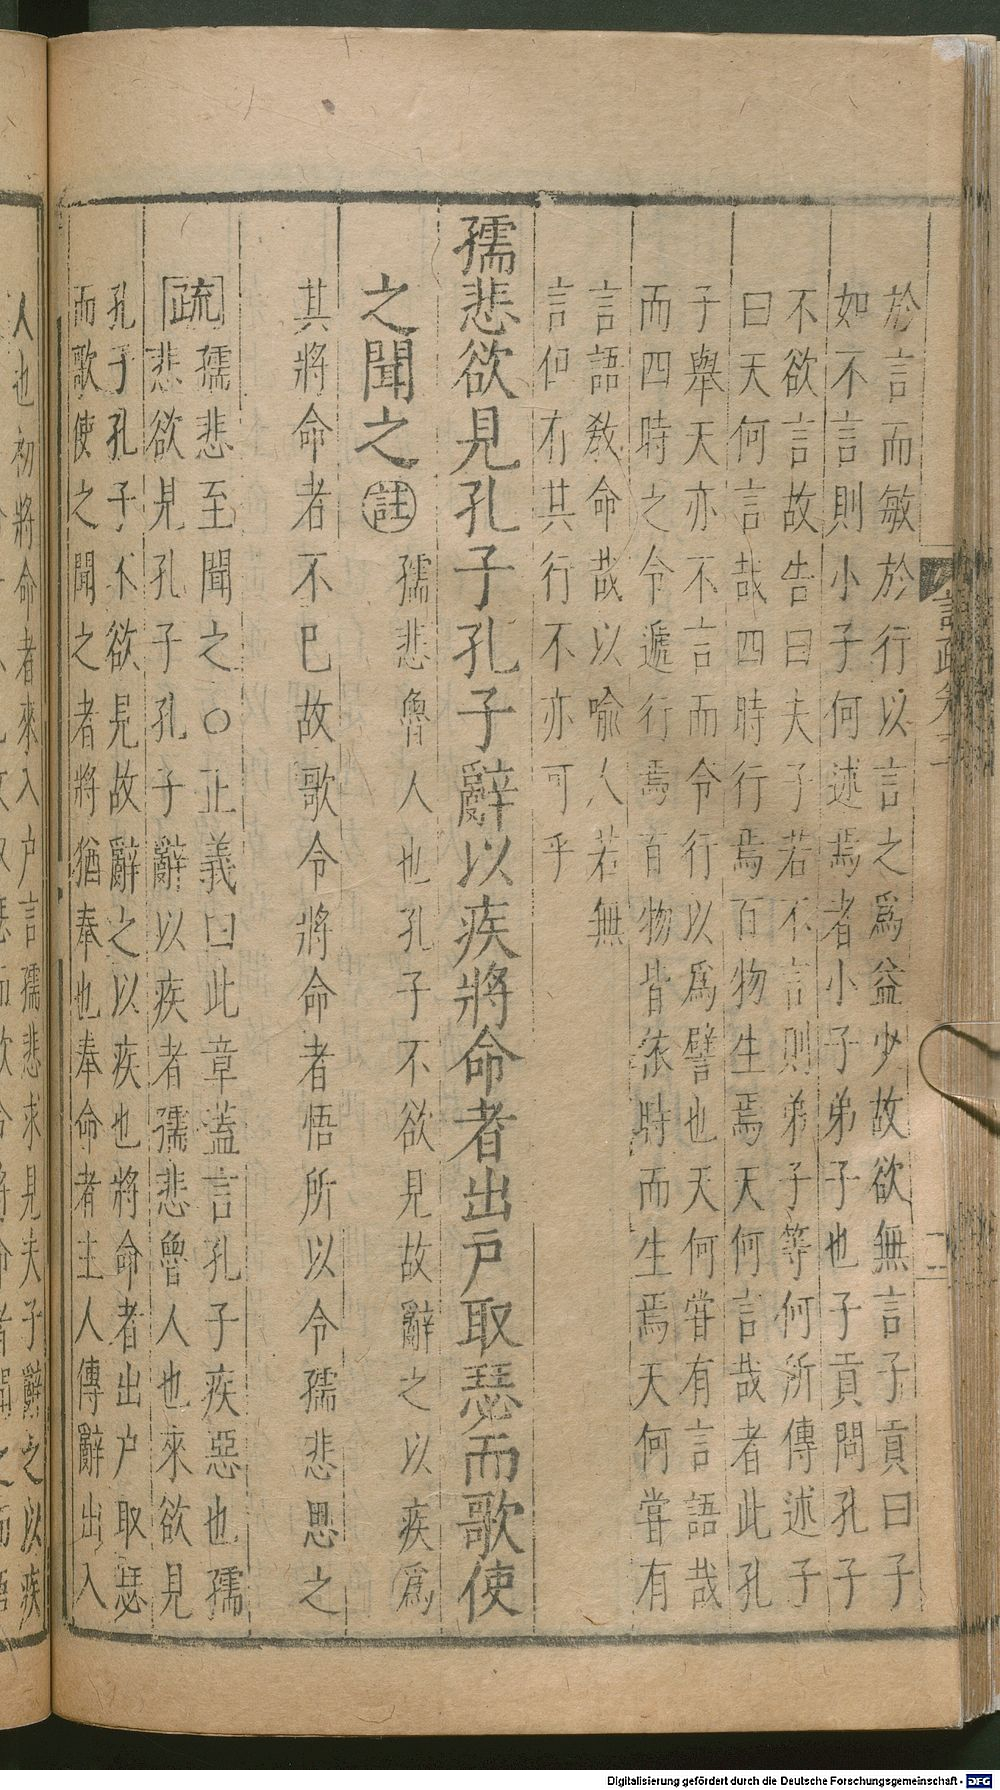 於言而敏於行以言之爲益少故欲無言子貢曰子
如不言則小子何述焉者小子弟子也子貢問孔子
不欲言故告曰夫子若不言則弟子等何所傳述子
曰天何言哉四時行焉百物生焉天何言哉者此孔
子舉天亦不言而令行以爲譬也天何嘗有言語哉
而四時之令遞行焉百物皆依時而生焉天何嘗有
言語教命哉以喻人若無
言但有其行不亦可乎
孺悲欲見孔子孔子辭以疾將命者出戶取瑟而歌使
之聞之註
孺悲魯人也孔子不欲見故辭之以疾爲
其將命者不已故歌令將命者悟所以令孺悲思之
疏孺悲至聞之○正義曰此章蓋言孔子疾惡也孺
悲欲見孔子孔子辭以疾者孺悲魯人也來欲見
孔子孔子不欲見故辭之以疾也將命者出戶取瑟
而歌使之聞之者將猶奉也奉命者主人傳辭出入
人也初將命者來入戶言孺悲求見夫子辭之以疾
Digitalisierung gefördert durch die Deutsche Forschungsgemeinschaft - DFG